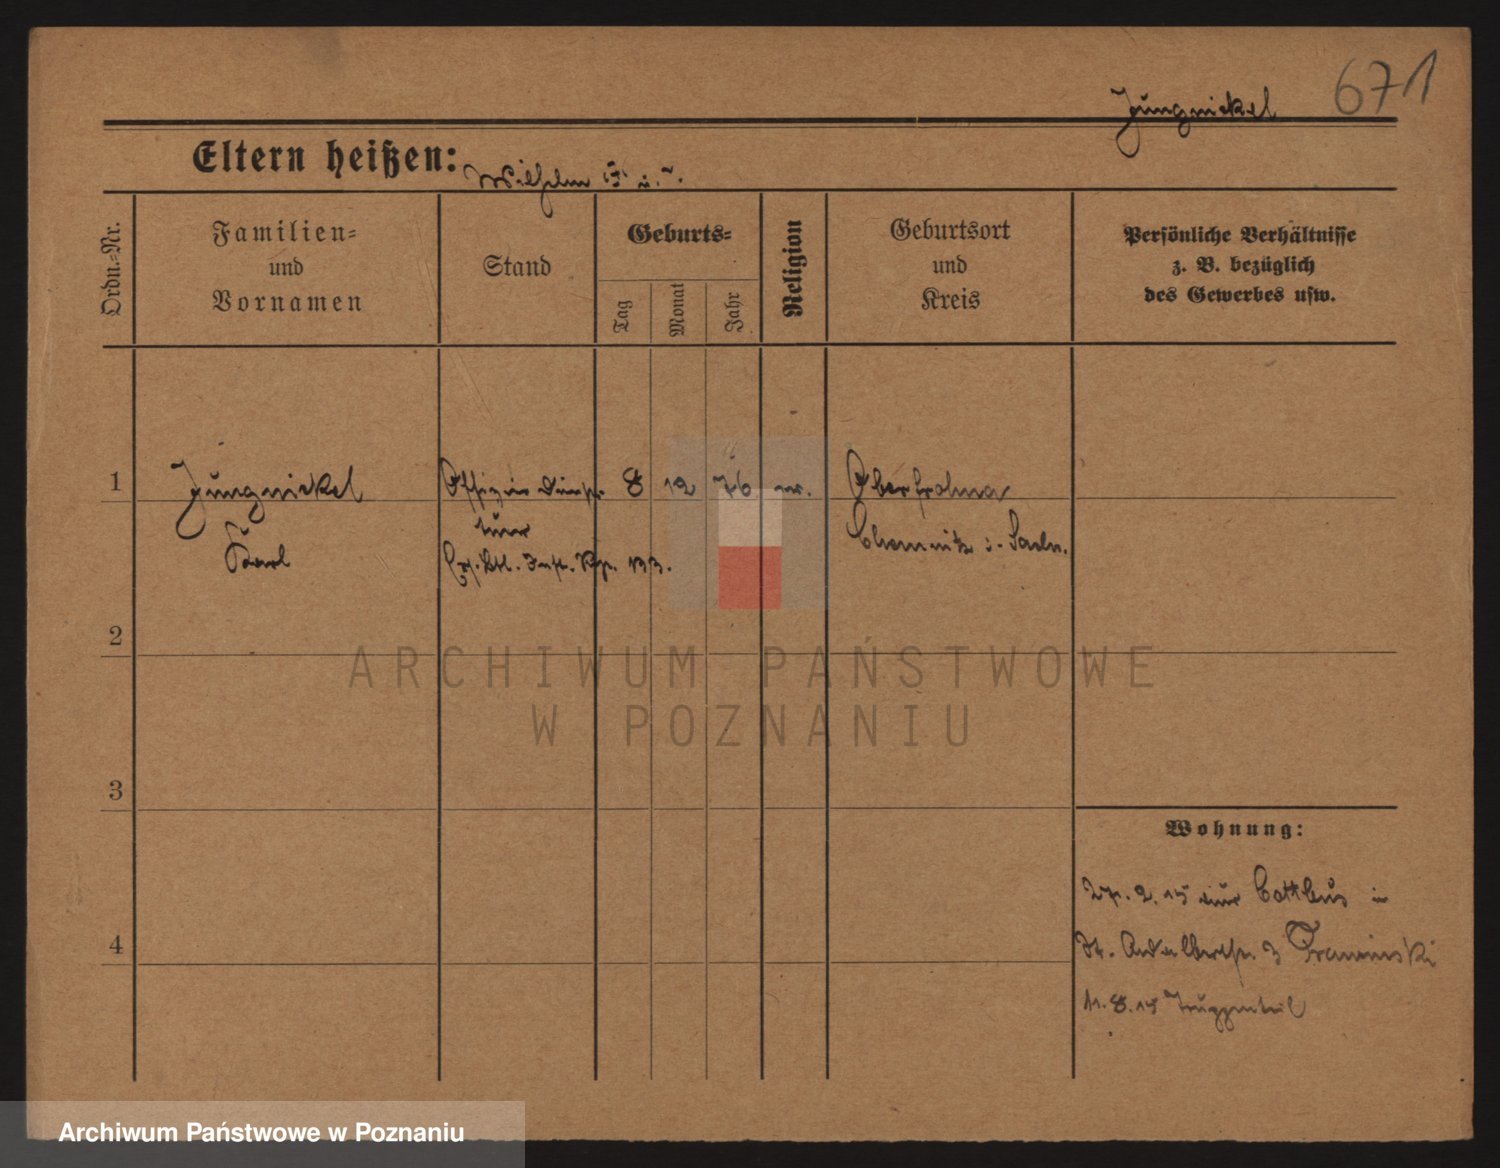 671
Jungnickel
Eltern heißen:
Wilhelm
Ordn.-Nr.
Familien-
und
Vornamen
Stand
Geburts-
Tag
Monat
Jahr
Religion
Geburtsort
und
Kreis
Persönliche Verhältnisse
z. B. bezüglich
des Gewerbes usw.
1
Jungnickel
Karl
Offizier
Ers. Btl. Inft. Rg. 133.
8
12
76
ev.
Oberfrohna
Chemnitz i. Sachs.
2
3
4
Wohnung:
27. 2. 15 aus Cottbus in
St. Adalbertstr. 3
11. 8. 15 Truppenteil
ARCHIWUM PAŃSTWOWE
W POZNANIU
Archiwum Państwowe w Poznaniu